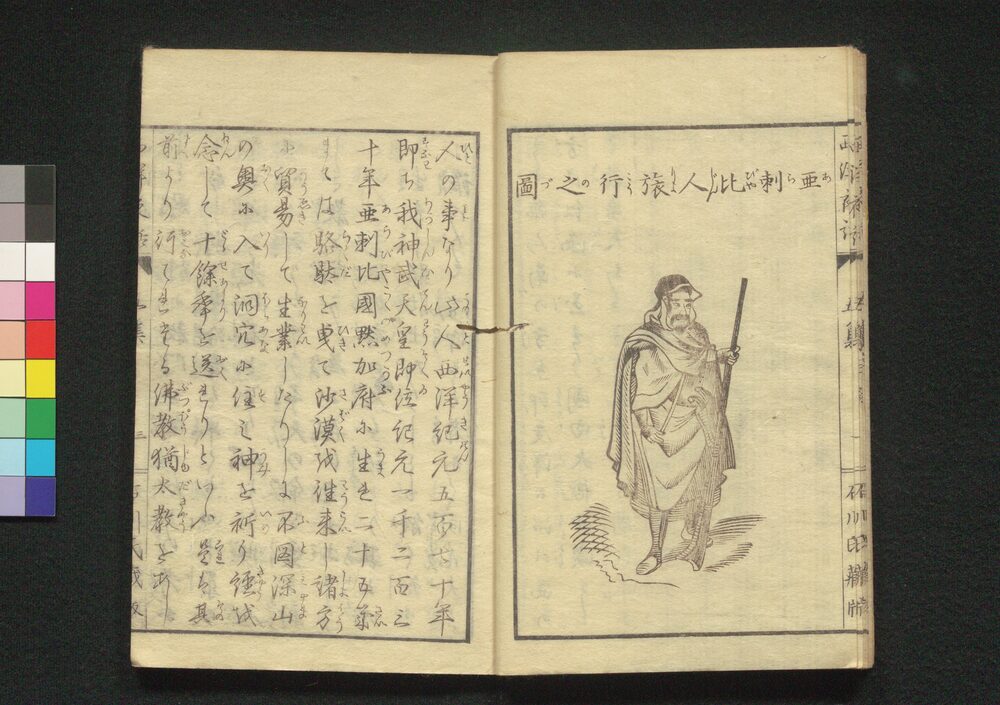 亜刺比人旅行之圖
人の事なり此人西洋紀元五百七十年
即ち我神武天皇即位紀元一千二百三
十年亜刺比國黙加府に生れ二十五歳
までは駱駄を曳て沙漠を徃来し諸方
に貿易して生業したりしに不図深山
の奥に入て洞穴に住し神を祈り経を
念して十餘年を送れりといふ是より其
前より行はれたる佛教猶太教を
五集
石川氏蔵版